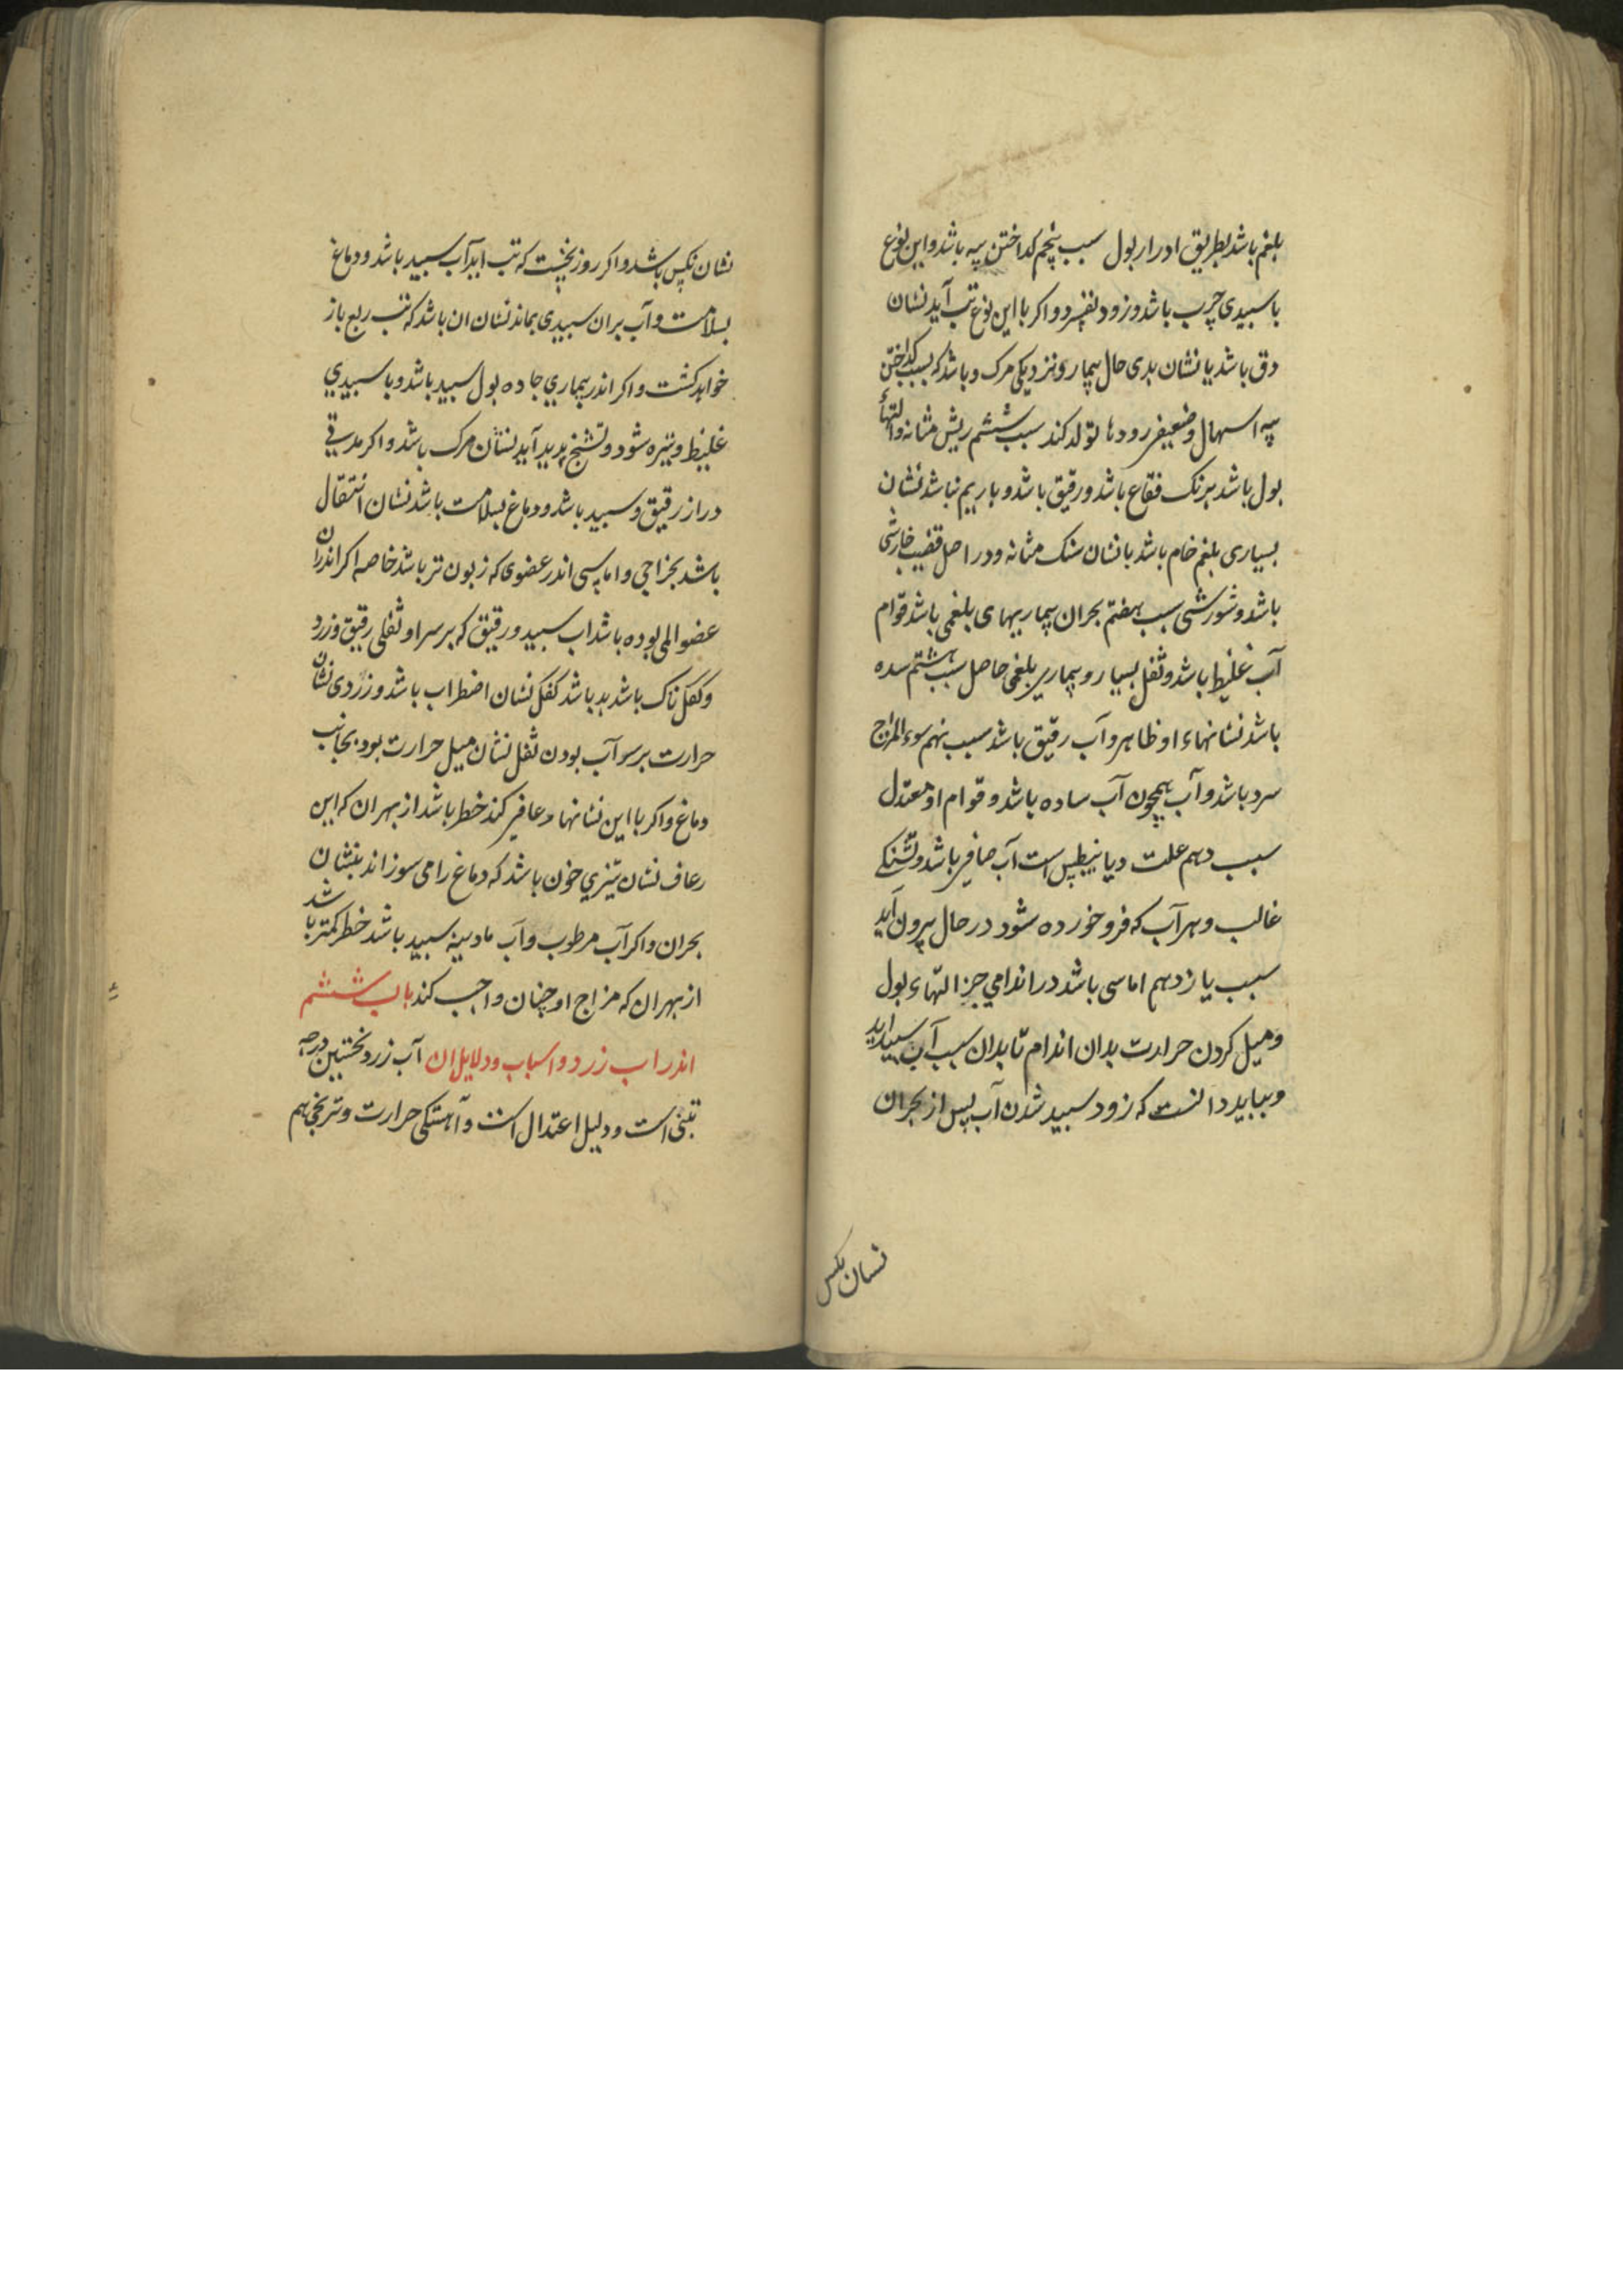 بلغم باشد بطریق ادرار بول سبب پنجم کداختن پیه باشد و این نوع
با سبیدی چرب باشد و زود بفسرد و اکر با این نوع تب آید نشان
دق باشد یا نشان بدی حال بیمار و نزدیکی مرک و باشد که بسبب کداختن
پیه اسهال و ضعیفی رودها تولد کند سبب ششم ریش مثانه و التهاء
بول باشد برنک فقاع باشد و رقیق باشد و با ریم نباشد نشان
بسیاری بلغم خام باشد با نشان سنک مثانه و در اصل قضیب خارشی
باشد و شورشی سبب هفتم بحران بیماریهای بلغمی باشد قوام
آب غلیظ باشد و ثفل بسیار و بیماری بلغمی حاصل سبب هشتم سده
باشد نشانهاء او ظاهر و آب رقیق باشد سبب نهم سوء المزاج
سرد باشد و آب همچون آب ساده باشد و قوام او معتدل
سبب دهم علت دیانیطس است آب صافی باشد و تشنکی
غالب و هر آب که فرو خورده شود در حال بیرون آید
سبب یازدهم اماسی باشد در اندامی جز التهاء بول
و میل کردن حرارت بدان اندام تا بدان سبب آب سبید اید
و بباید دانست که زود سبید شدن آب پس از بحران
نشان نکس
نشان نکس باشد و اکر روز نخست که تب اید آب سبید باشد و دماغ
بسلامت و آب بران سبیدی بماند نشان ان باشد که تب ربع باز
خواهد کشت و اکر اندر بیماری حاده بول سبید باشد و با سبیدی
غلیظ و تیره شود و تشنج پدید آید نشان مرک باشد و اکر مدتی
دراز رقیق و سبید باشد و دماغ بسلامت باشد نشان انتقال
باشد بخراجی و اماسی اندر عضوی که زبون تر باشد خاصه اکر اندران
عضو المی بوده باشد اب سبید و رقیق که بر سر او ثفلی رقیق و زرد
و کفک ناک باشد بد باشد کفک نشان اضطراب باشد و زردی نشان
حرارت بر سر آب بودن ثفل نشان میل حرارت بود بجانب
دماغ و اکر با این نشانها رعافی کند خطر باشد از بهر ان که این
رعاف نشان تیزی خون باشد که دماغ را می سوزاند نشان
بحران و اکر آب مرطوب و آب مادینه سبید باشد خطر کمتر باشد
از بهر ان که مزاج او چنان واجب کند باب ششم
اندر اب زرد و اسباب و دلایل ان آب زرد نخستین درجه
تبنی است و دلیل اعتدال است و آهستکی حرارت و ترنجی هم